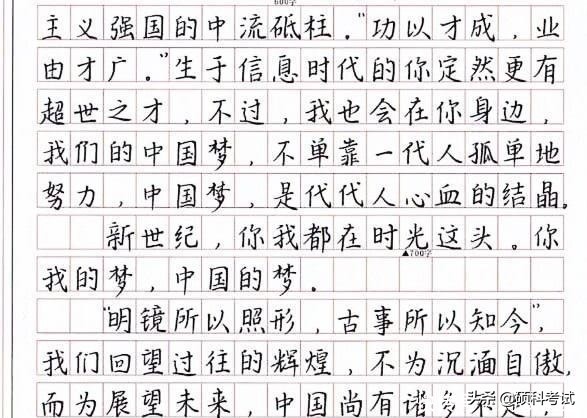 600字
主义强国的中流砥柱。"功以才成，业
由才广。"生于信息时代的你定然更有
超世之才，不过，我也会在你身边，
我们的中国梦，不单靠一代人孤单地
努力，中国梦，是代代人心血的结晶。
新世纪，你我都在时光这头。你
▲700字
我的梦，中国的梦。
"明镜所以照形，古事所以知今"，
我们回望过往的辉煌，不为沉湎自傲，
而为展望未来，中国尚有诸多
头条@硕科考试